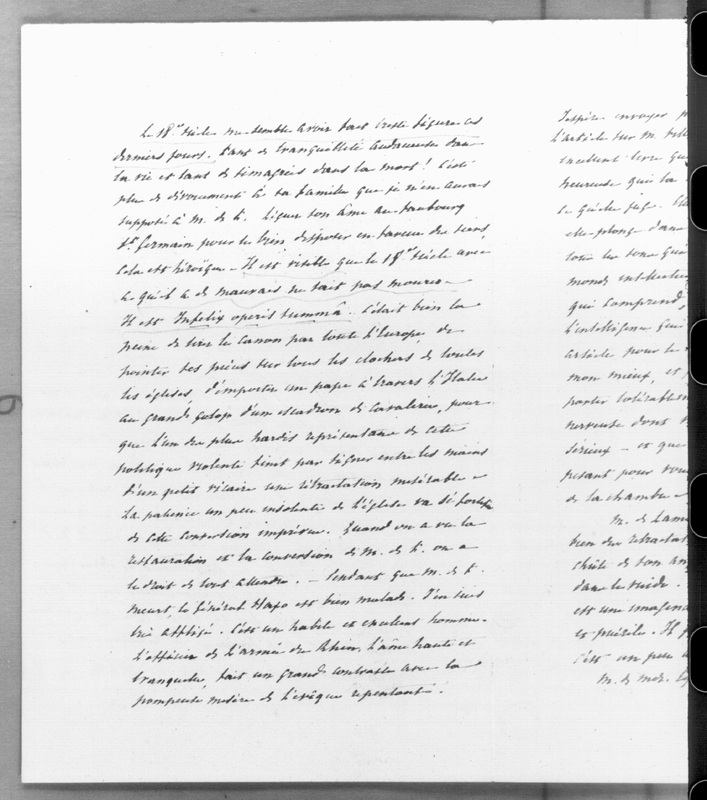 Le 18e siècle me semble avoir fait triste figure ces
derniers jours. Tant de tranquillité audacieuse dans
la vie et tant de simagrées dans la mort! C'est
plus de dévouement à sa famille que je n'en aurais
supposé à M. de T. Léguer son âme au faubourg
St. Germain pour le bien disposer en faveur des siens,
cela est héroïque. Il est visible que le 18e siècle avec
ce qu'il a de mauvais ne sait pas mourir.
Il est Infelix operis summâ. C'était bien la
peine de tirer le canon par toute l'Europe, de
pointer ses pièces sur tous les clochers de toutes
les églises, d'emporter un pape à travers l'Italie
au grand galop d'un escadron de cavalerie, pour
que l'un des plus hardis représentans de cette
politique violente finit par signer entre les mains
d'un petit vicaire une rétractation misérable.
La patience un peu insolente de l'église va se fortifier
de cette conversion imprévue. Quand on a vu la
restauration et la conversion de M. de T. on a
le droit de tout attendre. — Pendant que M. de T.
meurt, le Général Haxo est bien malade. J'en suis
très affligé. C'est un habile et excellent homme.
L'officier de l'armée du Rhin, l'âme haute et
tranquille, fait un grand contraste avec la
pompeuse misère de l'évêque repentant.
J'espère envoyer
l'article sur M.
excellent livre que
heureuse qui la
le qu'elle juge.
elle plonge dans
tous les tons
monde intellectuel
qui comprend,
l'intelligence
article pour le
mon mieux, et
porter
nerveuse dont
sérieux — et que
pesant pour vous
de la chambre
M. de Lam
bien des rétractat
chûte de son an
dans le vide.
est une imagina
et puérile. Il
c'est un peu
M. de